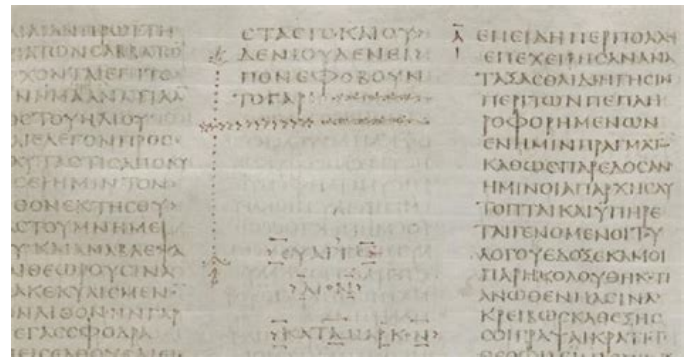 ΛΙΑΙΑΝΠΡΩΙΤΗ
ΜΙΑΤΩΝϹΑΒΒΑΤΩ
ΧΟΝΤΑΙΕΠΙΤΟ
ΝΗΜΑΑΝΑΤΙΛΑ
ΟϹΤΟΥΗΛΙΟΥ
ΑΙΕΛΕΓΟΝΠΡΟϹ
ΑΥΤΑϹΤΙϹΑΠΟΚΥ
ϹΕΙΗΜΙΝΤΟΝ
ΘΟΝΕΚΤΗϹΘΥ
ΑϹΤΟΥΜΝΗΜΕΙ
Υ ΚΑΙΑΝΑΒΛΕΨΑ
ΑΙΘΕΩΡΟΥϹΙΝΑ
ΑΚΕΚΥΛΙϹΜΕΝ
ΝΛΙΘΟΝΗΝΓΑΡ
ΕΓΑϹϹΦΟΔΡΑ
ϹΤΑϹΙϹΚΑΙΟΥ
ΔΕΝΙΟΥΔΕΝΕΙ
ΠΟΝΕΦΟΒΟΥΝ
ΤΟΓΑΡ
ΕΥΑΓΓΕ
ΛΙΟΝ
ΚΑΤΑΜΑΡΚΟΝ
Α ΕΠΕΙΔΗΠΕΡΠΟΛΛΟΙ
ΕΠΕΧΕΙΡΗϹΑΝΑΝΑ
ΤΑΞΑϹΘΑΙΔΙΗΓΗϹΙΝ
ΠΕΡΙΤΩΝΠΕΠΛΗ
ΡΟΦΟΡΗΜΕΝΩΝ
ΕΝΗΜΙΝΠΡΑΓΜΑΤ
ΚΑΘΩϹΠΑΡΕΔΟϹΑΝ
ΗΜΙΝΟΙΑΠΑΡΧΗϹΑΥ
ΤΟΠΤΑΙΚΑΙΫΠΗΡΕ
ΤΑΙΓΕΝΟΜΕΝΟΙΤΟΥ
ΛΟΓΟΥΕΔΟΞΕΚΑΜΟΙ
ΠΑΡΗΚΟΛΟΥΘΗΚΟΤΙ
ΑΝΩΘΕΝΠΑϹΙΝΑ
ΚΡΕΙΒΩϹΚΑΘΕΞΗϹ
ϹΟΙΓΡΑΨΑΙΚΡΑΤΙϹ